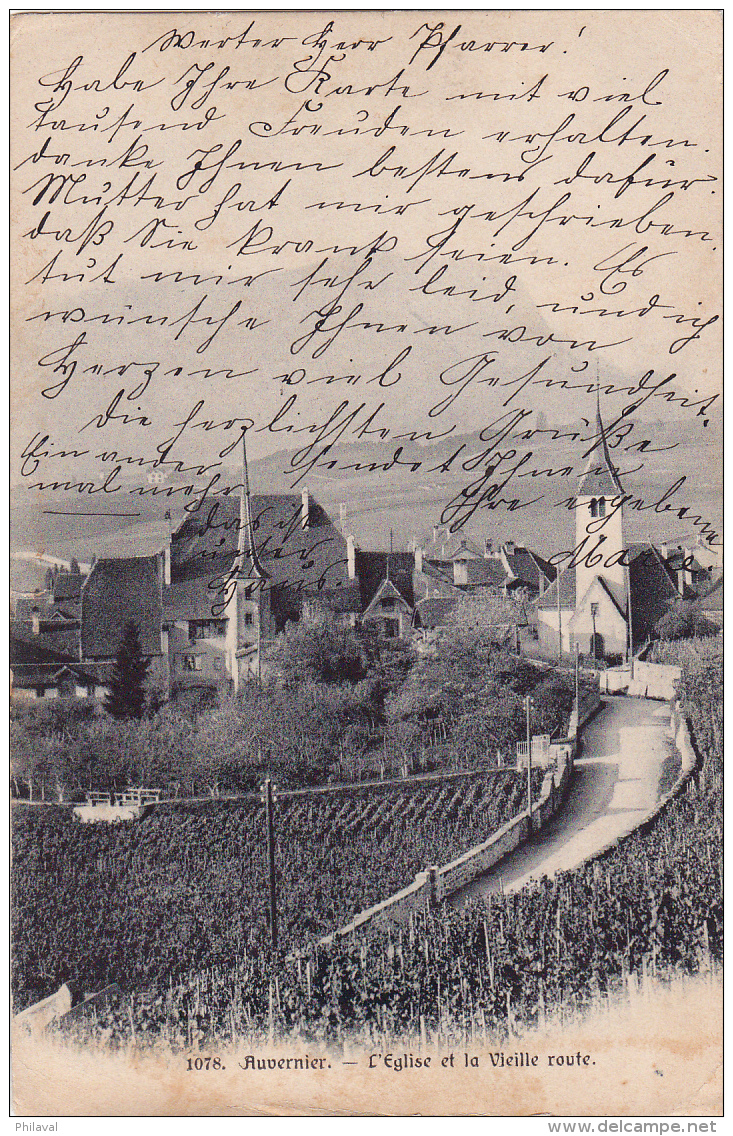 Werter Herr Pfarrer!
Habe Ihre Karte mit viel
tausend Freuden erhalten.
danke Ihnen bestens dafür.
Mutter hat mir geschrieben,
daß Sie krank seien. Es
tut mir sehr leid, und ich
wünsche Ihnen von
Herzen viel Gesundheit.
Die herzlichsten Grüße
Ein ander sendet Ihnen
mal mehr Ihre ergebene
Marie
das ist
unter
Haus.
1078. Auvernier. – L'Eglise et la Vieille route.
Philaval
www.delcampe.net